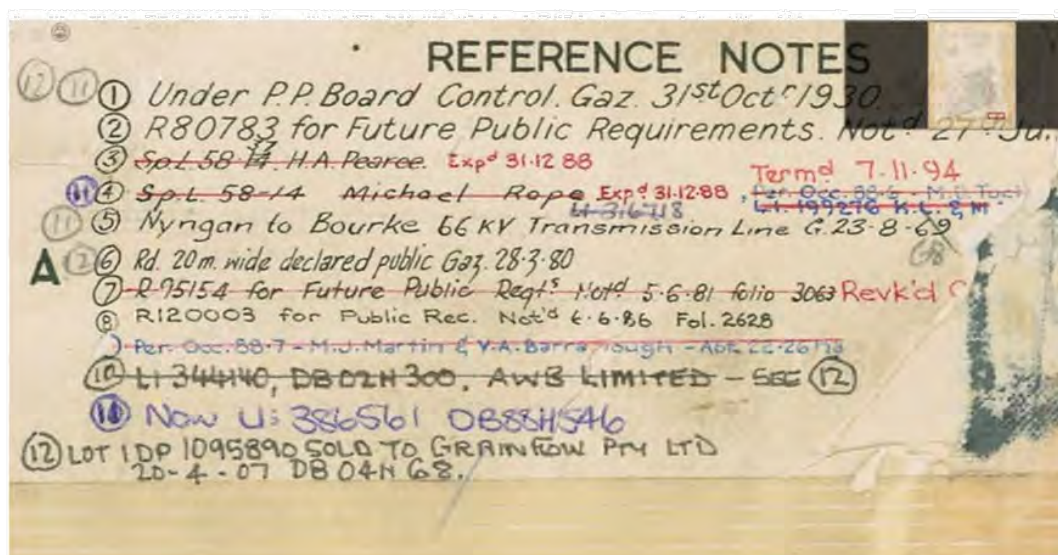 REFERENCE NOTES
12 11 1 Under P.P. Board Control. Gaz. 31st Octr 1930.
2 R80783 for Future Public Requirements. Not'd 27
3 Sp.L. 58 H.A. Pearce. Expd 31.12.88
Termd 7-11-94
4 Sp.L. 58-14 Michael Rope Expd 31.12.88, Per. Occ. 88-6 - M.
LI. 199276 K.L. & M.
11 5 Nyngan to Bourke 66 KV Transmission Line G. 23-8-69
68
A 12 6 Rd. 20m. wide declared public Gaz. 28.3.80
7 R 95154 for Future Public Reqts Notd 5.6.81 folio 3063 Revk'd
8 R120003 for Public Rec. Not'd 6.6.86 Fol. 2628
Per. Occ. 88-7 - M.J. Martin & V.A.
10 LI 344140, DB02H300, AWB LIMITED - SEE 12
11 Now LI: 386561 DB88H546
12 LOT 1 DP 1095890 SOLD TO GRAINFLOW PTY LTD
20-4-07 DB04H68.